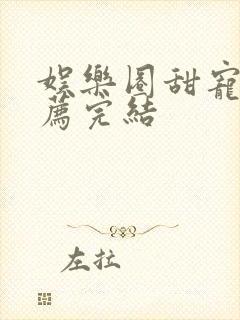 娛樂圈甜寵
薦完結
左拉